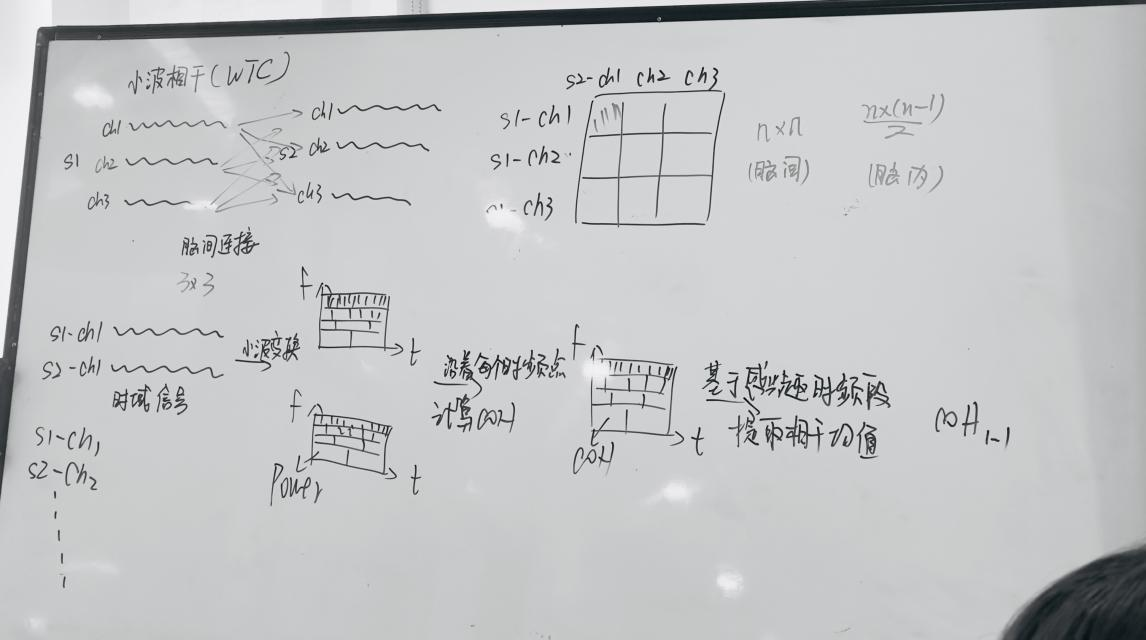 小波相干(WTC)
ch1
ch1
s1
ch2
s2
ch2
ch3
ch3
脑间连接
3x3
s2-ch1 ch2 ch3
s1-ch1
s1-ch2
-ch3
n×n
(脑间)
n×(n-1)
2
(脑内)
s1-ch1
s2-ch1
时域信号
小波变换
f
t
f
Power
t
沿着每个时频点
计算COH
f
COH
t
基于感兴趣时频段
提取相干均值
COH1-1
S1-Ch1
S2-Ch2